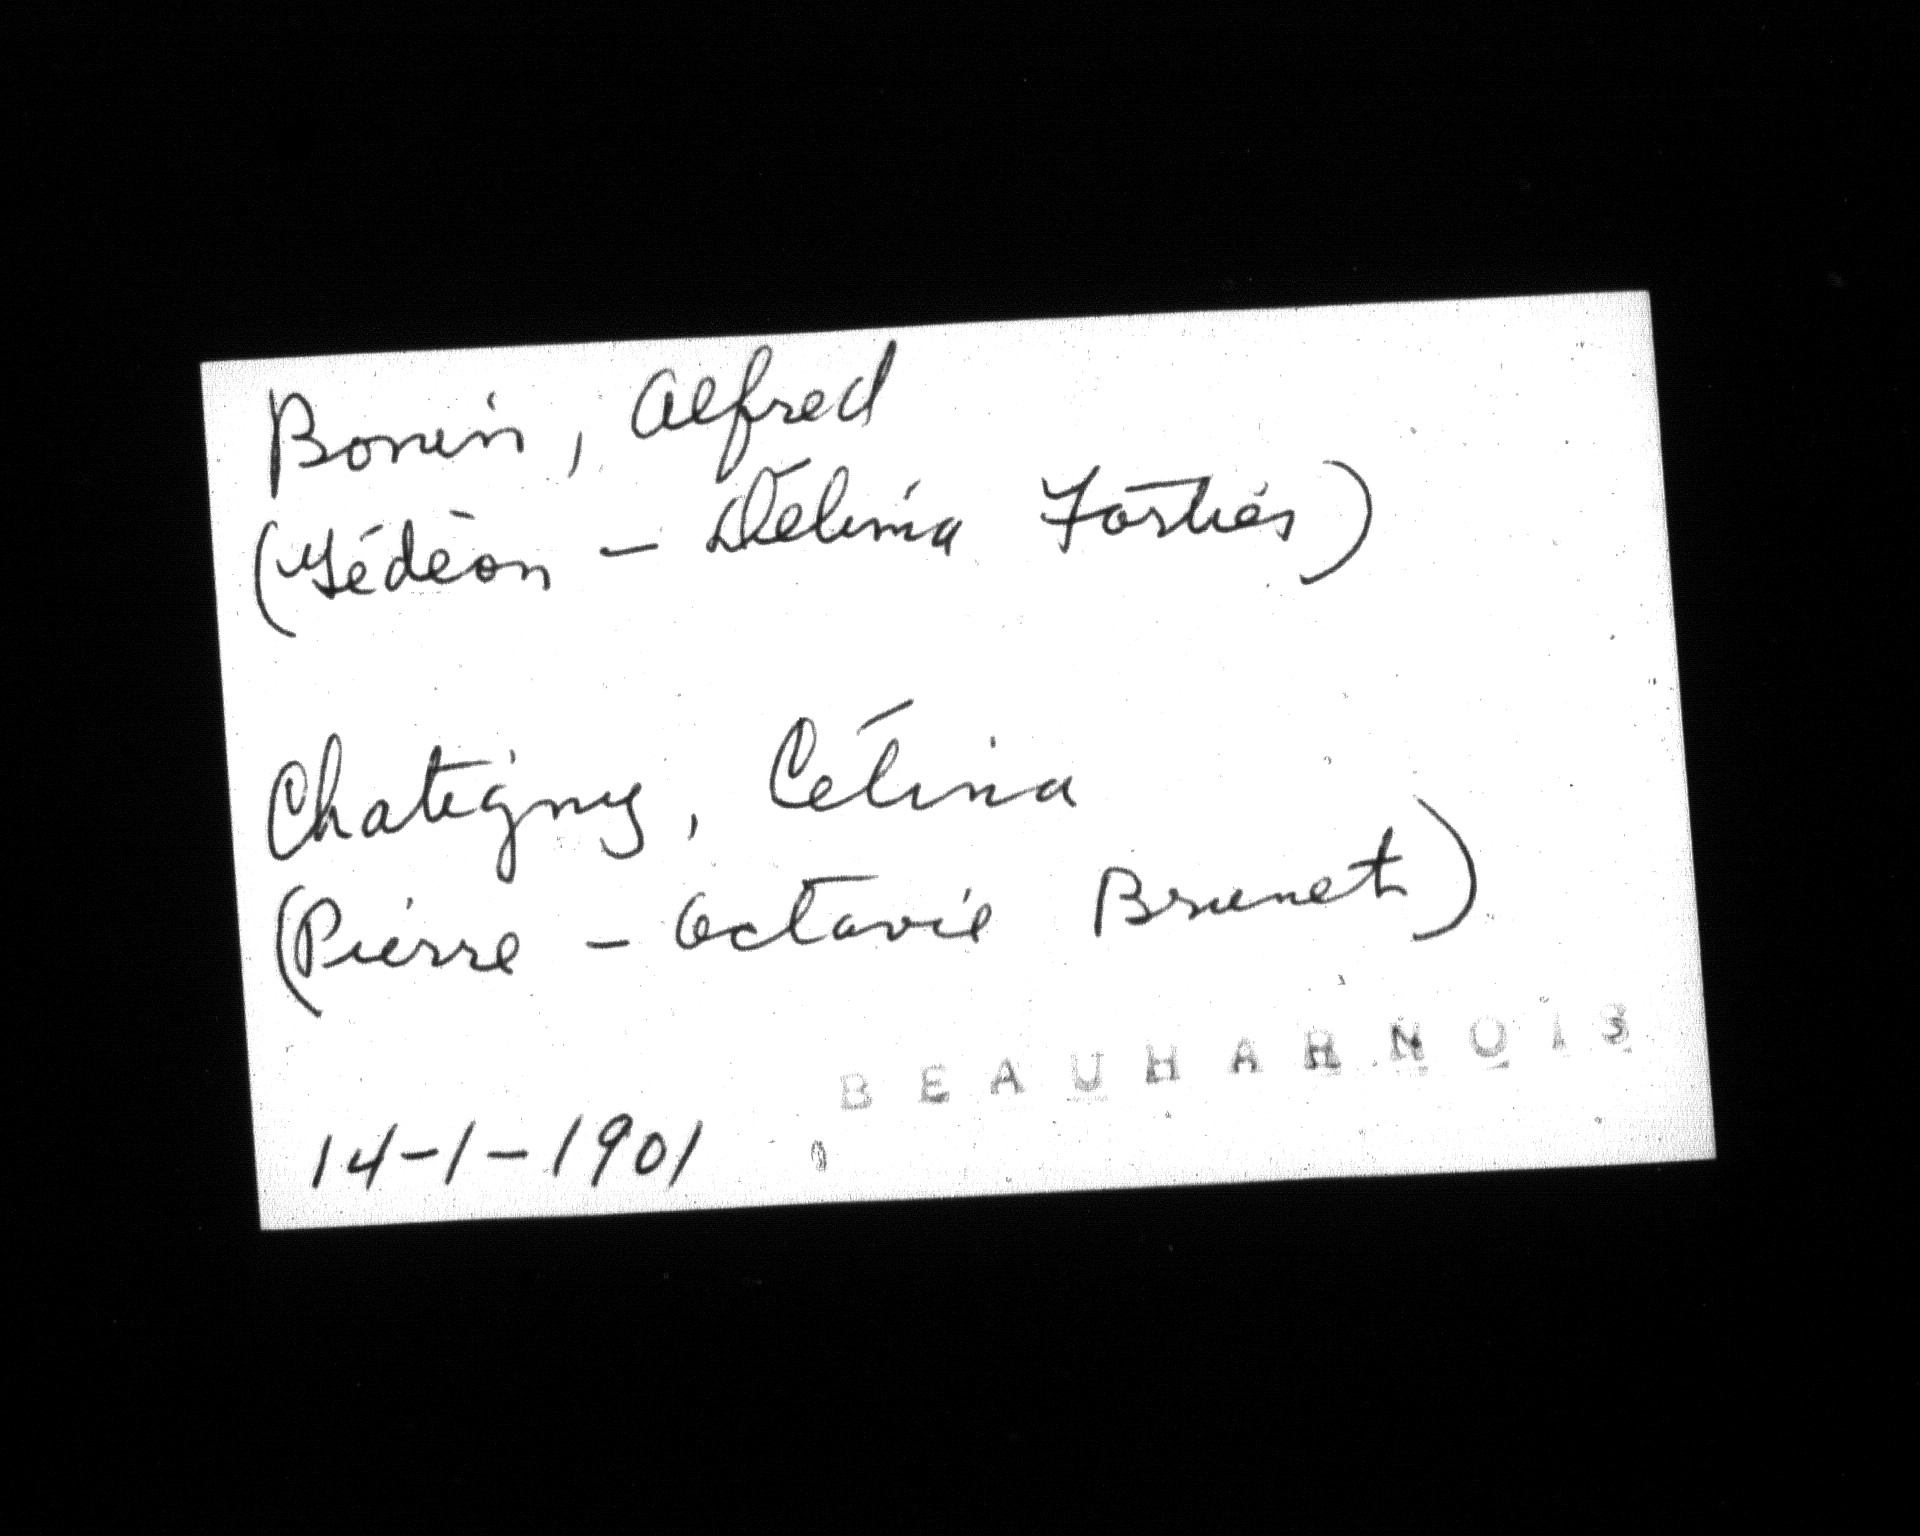 Bonin, Alfred
(Gédéon - Délima Forties)
Chatigny, Célina
(Pierre - Octavie Brunet)
BEAUHARNOIS
14-1-1901